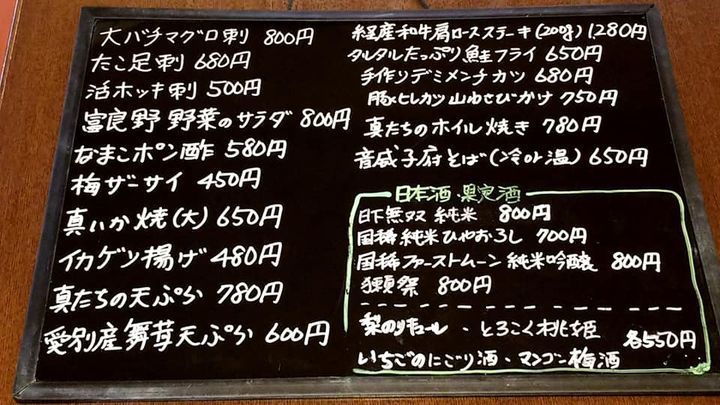 大バチマグロ刺 800円
たこ足刺 680円
活ホッキ刺 500円
富良野 野菜のサラダ 800円
なまこポン酢 580円
梅ザーサイ 450円
真いか焼(大) 650円
イカゲソ揚げ 480円
真たちの天ぷら 780円
愛別産舞茸天ぷら 600円
経産和牛肩ロースステーキ(200g) 1280円
タルタルたっぷり鮭フライ 650円
手作りデミメンチカツ 680円
豚ヒレカツ山わさびかけ 750円
真たちのホイル焼き 780円
音威子府そば(冷or温) 650円
日本酒・果実酒
日下無双 純米 800円
国稀 純米ひやおろし 700円
国稀ファーストムーン 純米吟醸 800円
獺祭 800円
梨のリキュール・とろこく桃姫 各550円
いちごのにごり酒・マンゴー梅酒